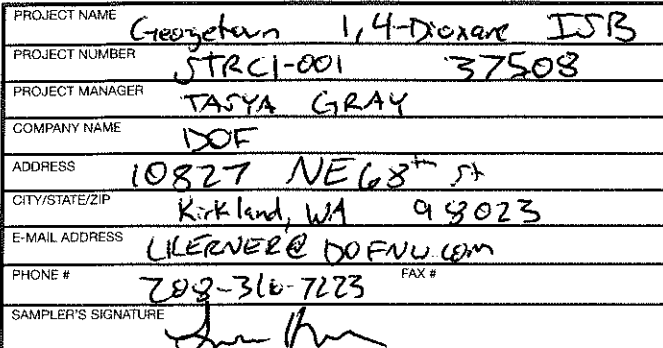 PROJECT NAME Georgetown 1,4-Dioxane ISB
PROJECT NUMBER STRCI-001 37508
PROJECT MANAGER TASYA GRAY
COMPANY NAME DOF
ADDRESS 10827 NE 68th St
CITY/STATE/ZIP Kirkland, WA 98023
E-MAIL ADDRESS LKERNER@DOFNW.COM
PHONE # 208-316-7223 FAX #
SAMPLER'S SIGNATURE